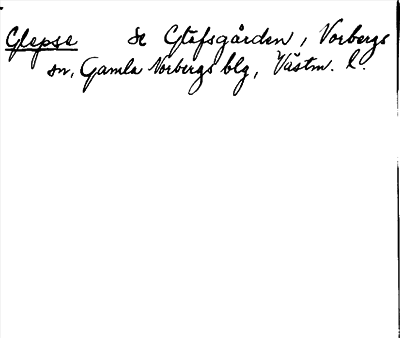 Glepse Se Olofsgården, Norbergs
sn, Gamla Norbergs blg, Västm. l.